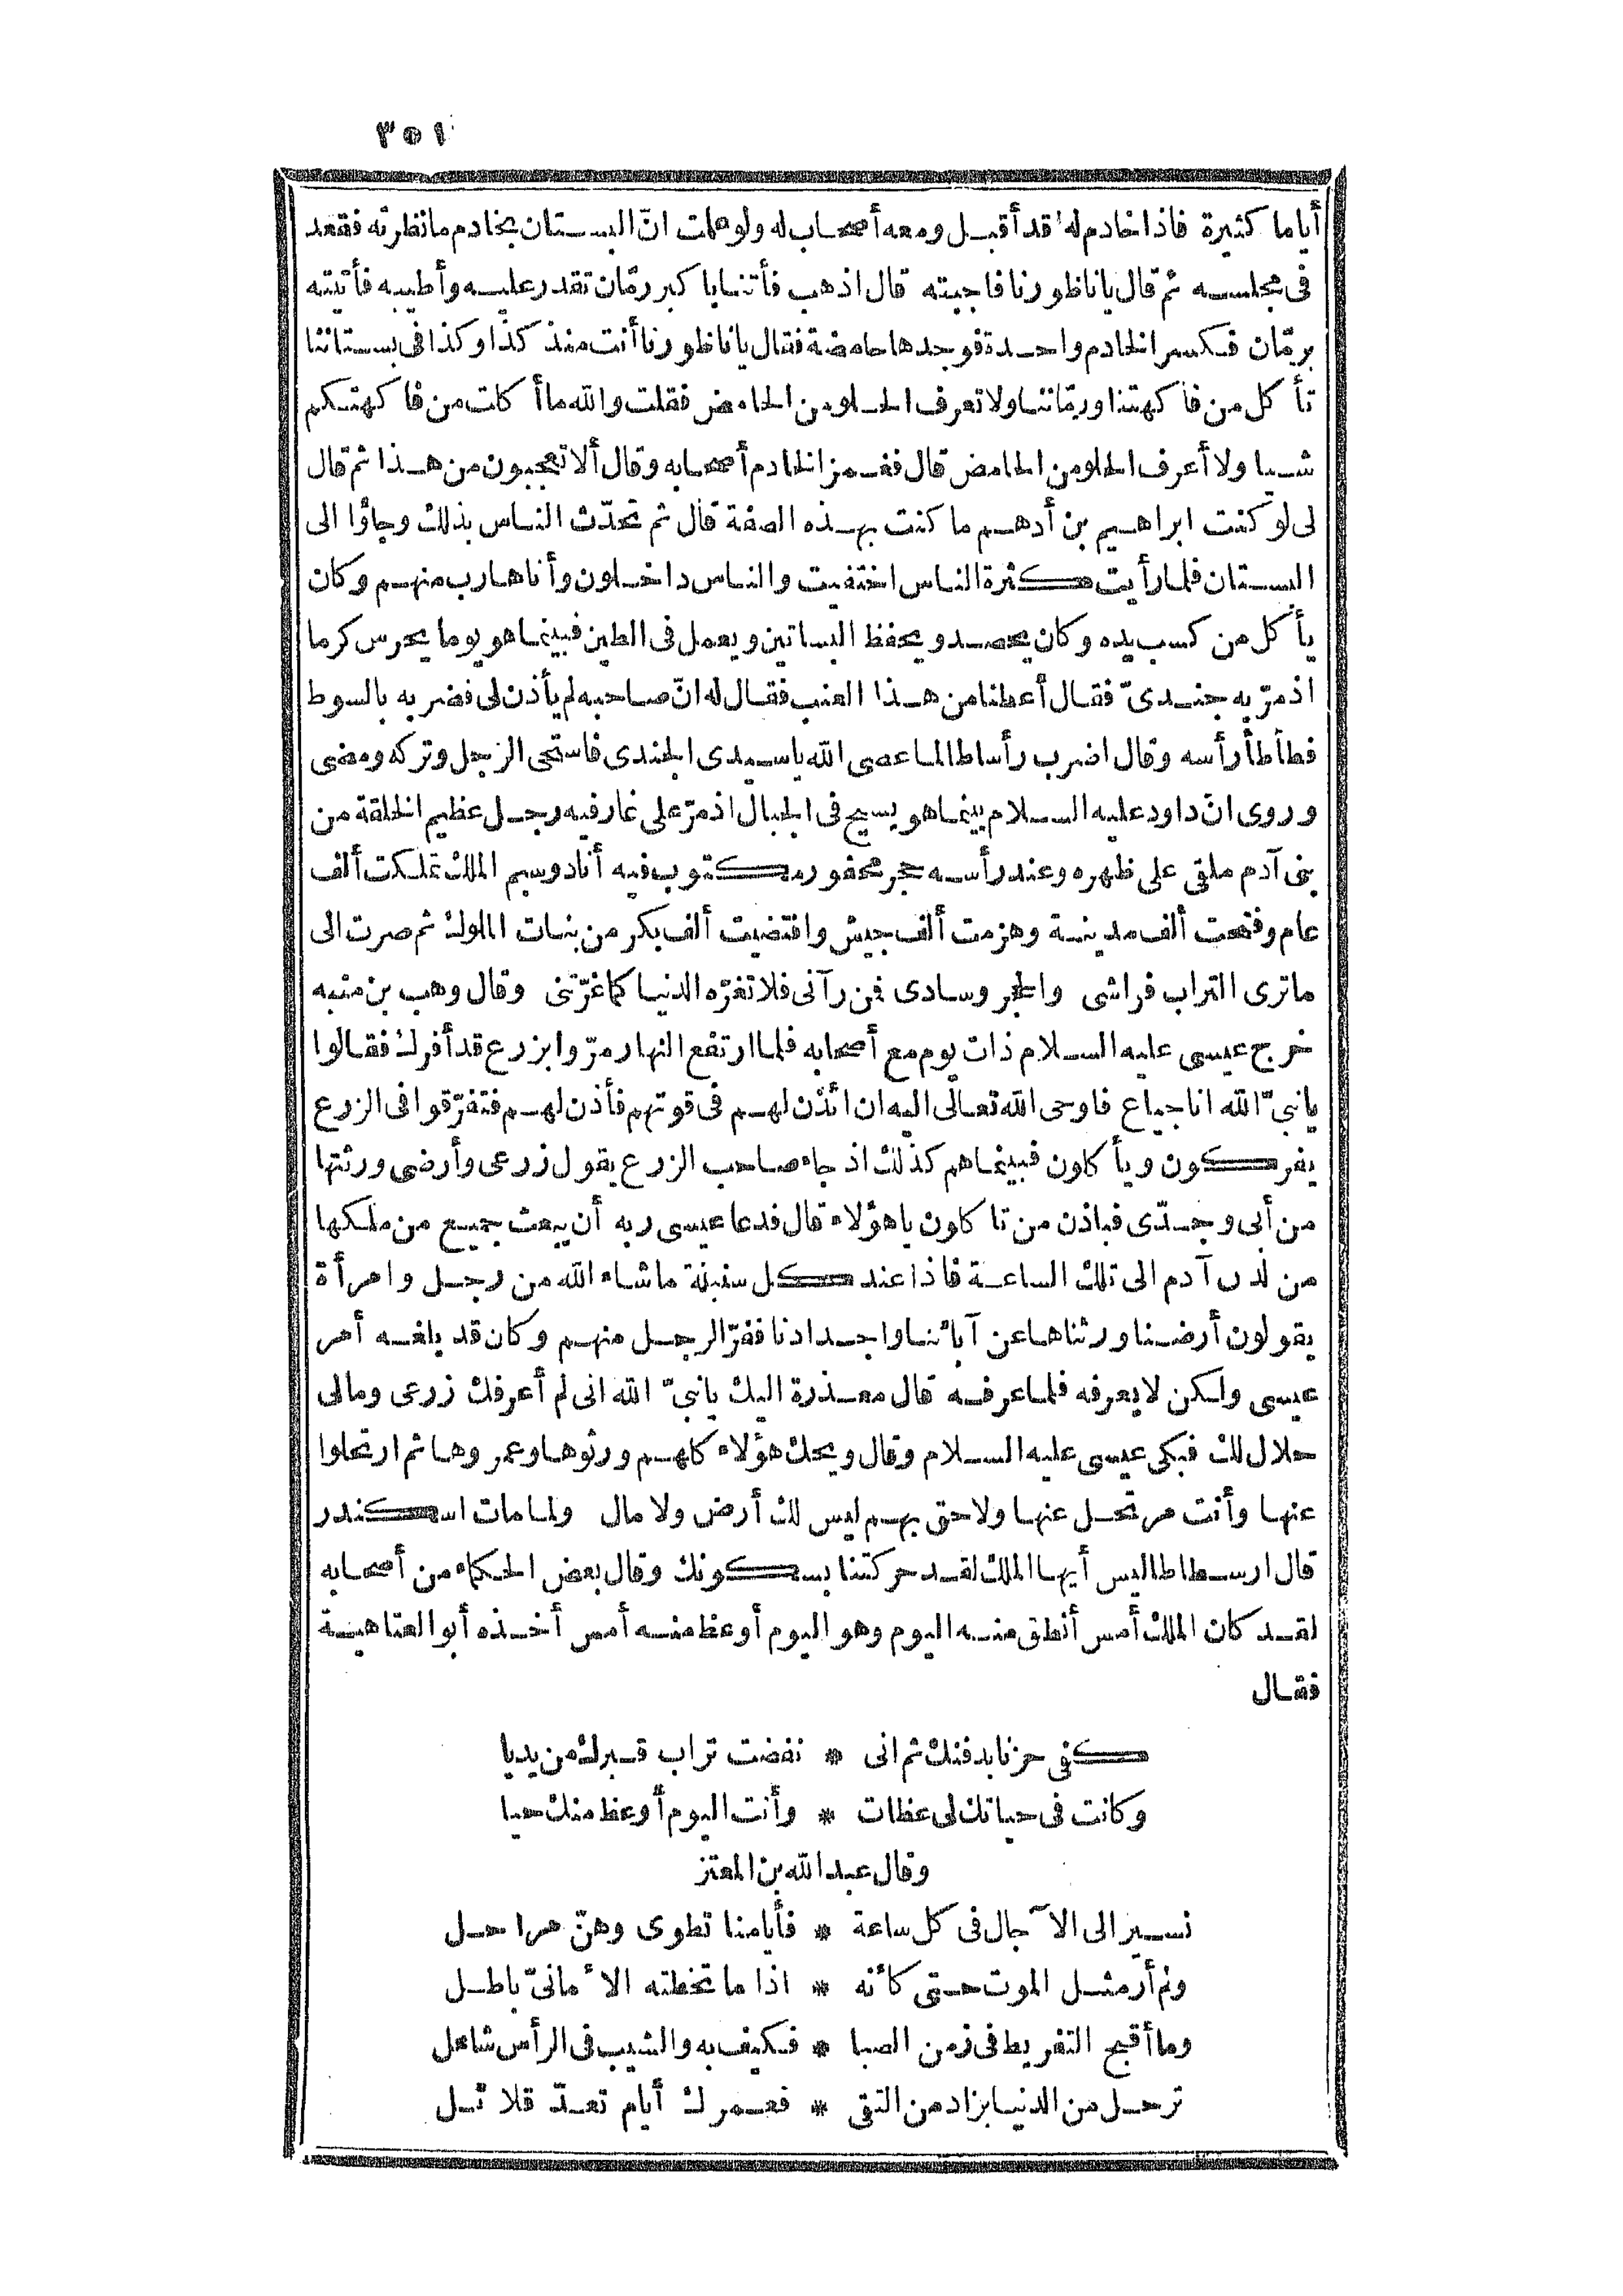 ٣٥١
أياما كثيرة فاذا خادم له قد أقبل ومعه أصحاب له ولو علمت انّ البستان بخادم ما نظرته فقعد
فى مجلسه ثم قال يا ناظورنا فاجبته قال اذهب فأتنا با كبر رمّان تقدر عليه وأطيبه فأتيته
برمّان فكسر الخادم واحدة فوجدها حامضة فقال يا ناظورنا أنت منذ كذا وكذا فى بستاننا
تأكل من فا كهتنا ورمّاننا ولا تعرف الحلو من الحامض فقلت والله ما أ كلت من فا كهتكم
شيا ولا أعرف الحلو من الحامض قال فغمز الخادم أصحابه وقال ألا تعجبون من هذا ثم قال
لى لو كنت ابراهيم بن أدهم ما كنت بهذه الصفة قال ثم تحدّث الناس بذلك وجاؤا الى
البستان فلما رأيت كثرة الناس اختفيت والناس داخلون وأنا هارب منهم وكان
يأكل من كسب يده وكان يحصد ويحفظ البساتين ويعمل فى الطين فبينما هو يوما يحرس كرما
اذ مرّ به جندىّ فقال أعطنا من هذا العنب فقال له انّ صاحبه لم يأذن لى فضربه بالسوط
فطأطأ رأسه وقال اضرب رأسا طالما عصى الله يا سيدى الجندى فاستحى الرجل وتركه ومضى
وروى ان داود عليه السلام بينما هو يسيح فى الجبال اذ مرّ على غار فيه رجل عظيم الخلقة من
بنى آدم ملقى على ظهره وعند رأسه حجر محفور مكتوب فيه أنا دوسيم الملك تملكت ألف
عام وفتحت ألف مدينة وهزمت ألف جيش وافتضيت ألف بكر من بنات الملوك ثم صرت الى
ما ترى التراب فراشى والحجر وسادى فمن رآنى فلا تغرّه الدنيا كما غرّتنى وقال وهب بن منبه
خرج عيسى عليه السلام ذات يوم مع أصحابه فلما ارتفع النهار مرّوا بزرع قد أفرك فقالوا
يا نبىّ الله انا جياع فاوحى الله تعالى اليه ان ائذن لهم فى قوتهم فأذن لهم فتفرّقوا فى الزرع
يفركون ويأكلون فبينما هم كذلك اذ جاء صاحب الزرع يقول زرعى وأرضى ورثتها
من أبى وجدّى فباذن من تا كلون يا هؤلاء قال فدعا عيسى ربه أن يبعث جميع من ملكها
من لدن آدم الى تلك الساعة فاذا عند كل سنبلة ما شاء الله من رجل وامرأة
يقولون أرضنا ورثناها عن آبائنا واجدادنا ففرّ الرجل منهم وكان قد بلغه أمر
عيسى ولكن لا يعرفه فلما عرفه قال معذرة اليك يا نبىّ الله انى لم أعرفك زرعى ومالى
حلال لك فبكى عيسى عليه السلام وقال ويحك هؤلاء كلهم ورثوها وعمروها ثم ارتحلوا
عنها وأنت مرتحل عنها ولاحق بهم ليس لك أرض ولا مال ولما مات اسكندر
قال ارسطاطاليس أيها الملك لقد حركتنا بسكونك وقال بعض الحكماء من أصحابه
لقد كان الملك أمس أنطق منه اليوم وهو اليوم أوعظ منه أمس أخذه أبو العتاهية
فقال
كفى حزنا بدفنك ثم انى * نفضت تراب قبرك من يديا
وكانت فى حياتك لى عظات * وأنت اليوم أوعظ منك حيا
وقال عبد الله بن المعتز
نسير الى الآجال فى كل ساعة * فأيامنا تطوى وهنّ مراحل
ولم أر مثل الموت حتى كأنه * اذا ما تخطته الأمانىّ باطل
وما أقبح التفريط فى زمن الصبا * فكيف به والشيب فى الرأس شاعل
ترحل من الدنيا بزاد من التقى * فعمرك أيام تعدّ قلائل